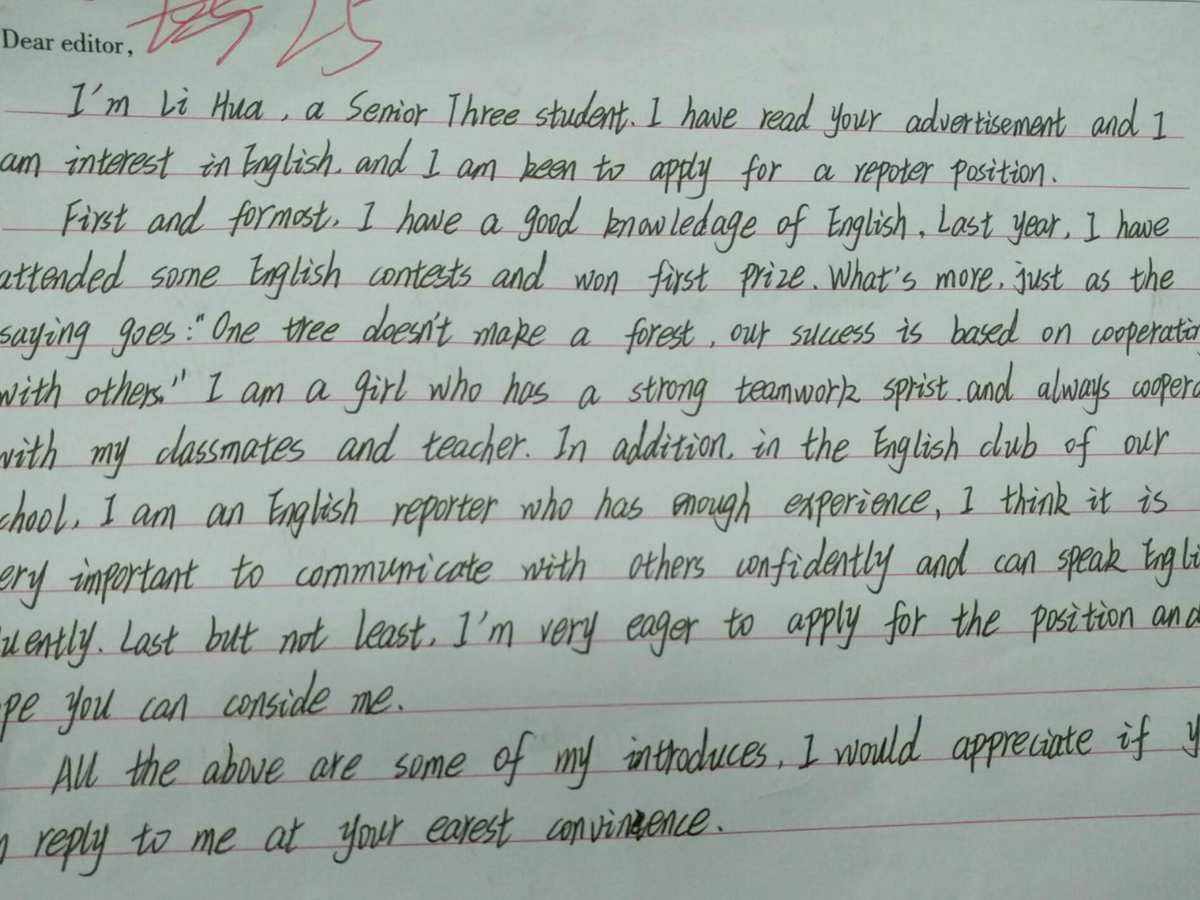 Dear editor, 25
I'm Li Hua, a Senior Three student. I have read your advertisement and I
am interest in English. and I am keen to apply for a repoter position.
First and formost, I have a good knowledage of English. Last year, I have
attended some English contests and won first prize. What's more, just as the
saying goes: "One tree doesn't make a forest, our success is based on cooperation
with others." I am a girl who has a strong teamwork sprist. and always coopera
with my classmates and teacher. In addition, in the English club of our
chool, I am an English reporter who has enough experience, I think it is
ery important to communicate with others confidently and can speak Engli
uently. Last but not least, I'm very eager to apply for the position and
pe you can conside me.
All the above are some of my introduces, I would appreciate if y
n reply to me at your earest convinence.